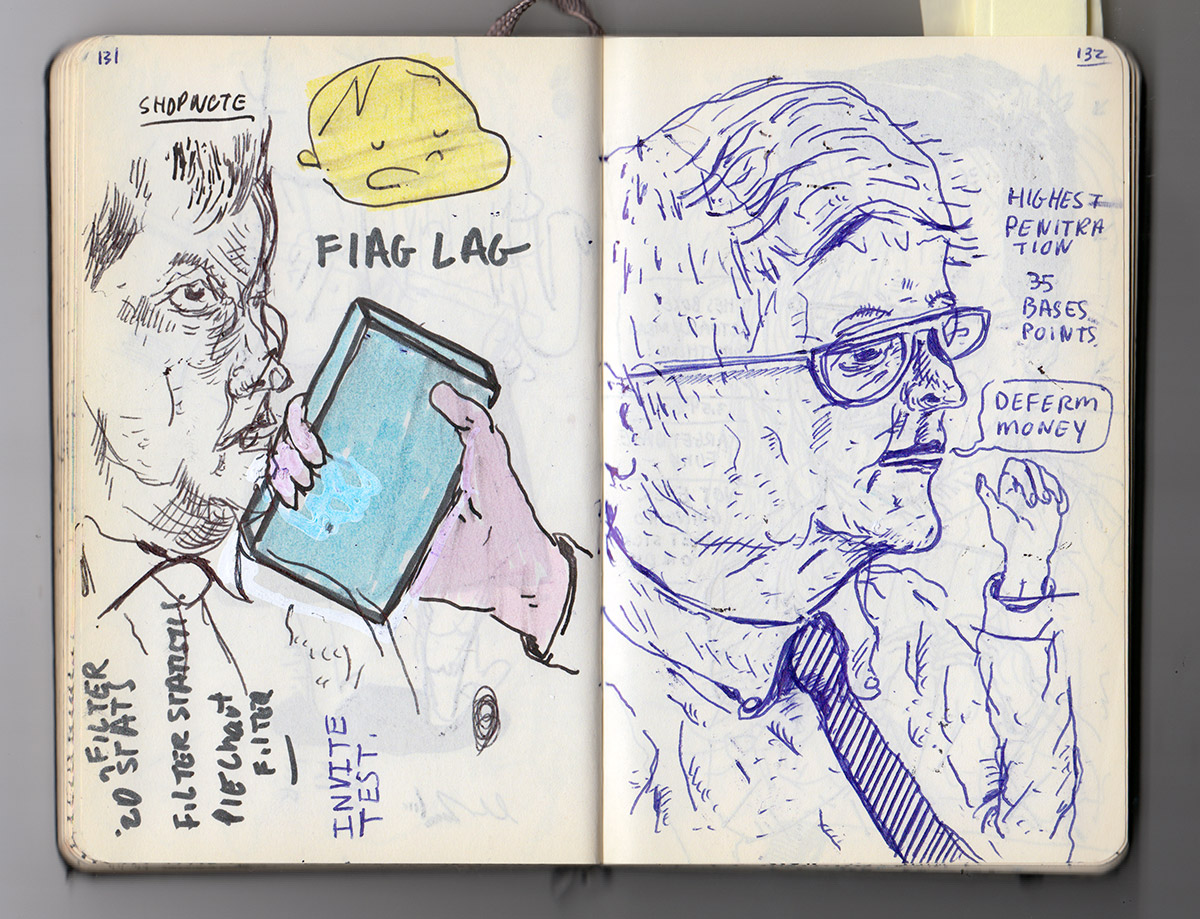 131
SHOPNOTE
FIAG LAG
'20 FILTER
STATS
FILTER STARCH
PIECHART
FILTER
INVITE
TEST.
132
HIGHEST
PENITRA
TION
35
BASES
POINTS
DEFERM
MONEY